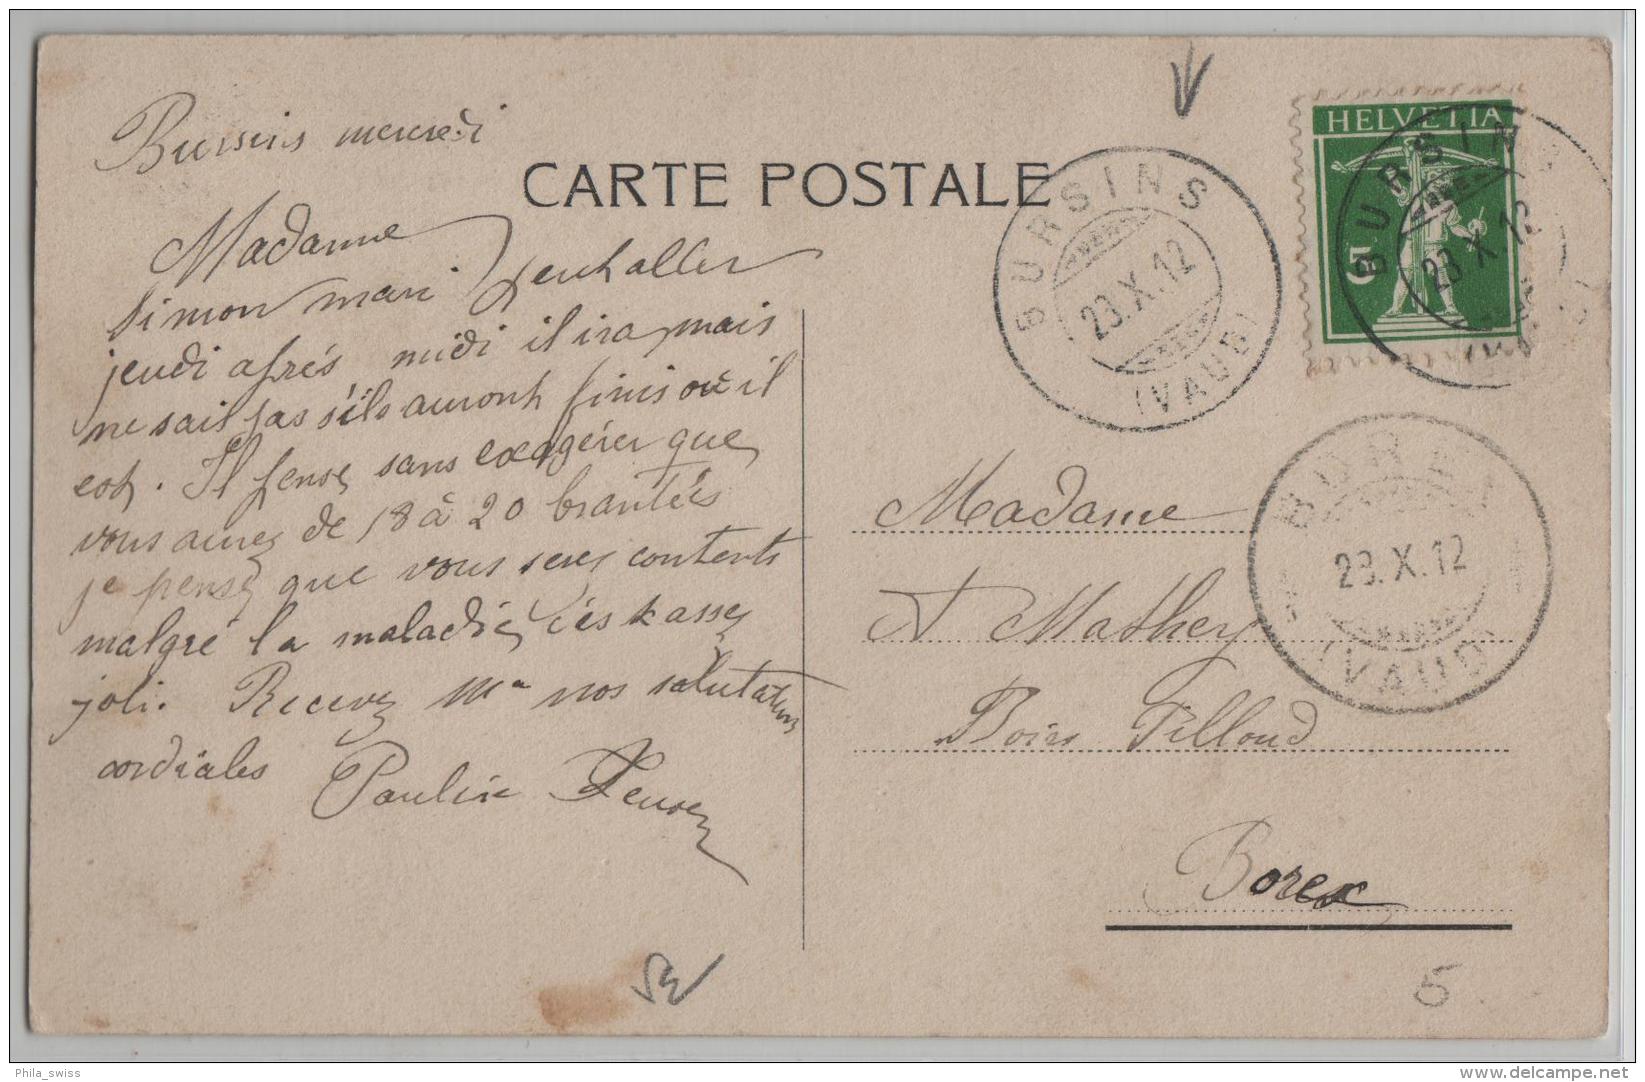 Bursins mercredi
CARTE POSTALE
Madame
Simon mari
jeudi après midi il ira, mais
ne sait pas s'ils auront finis où il
est. Il pense sans exagérer que
vous aurez de 18 à 20 brantées
je pense que vous serez contents
malgré la maladie, c'est assez
joli. Recevez Mᵐ nos salutations
cordiales Pauline
HELVETIA
5
BURSINS
23.X.12
(VAUD)
BURSINS
23.X.12
BOREX
23.X.12
(VAUD)
Madame
A Mathey
Bois Pilloud
Borex
5
Phila_swiss
www.delcampe.net